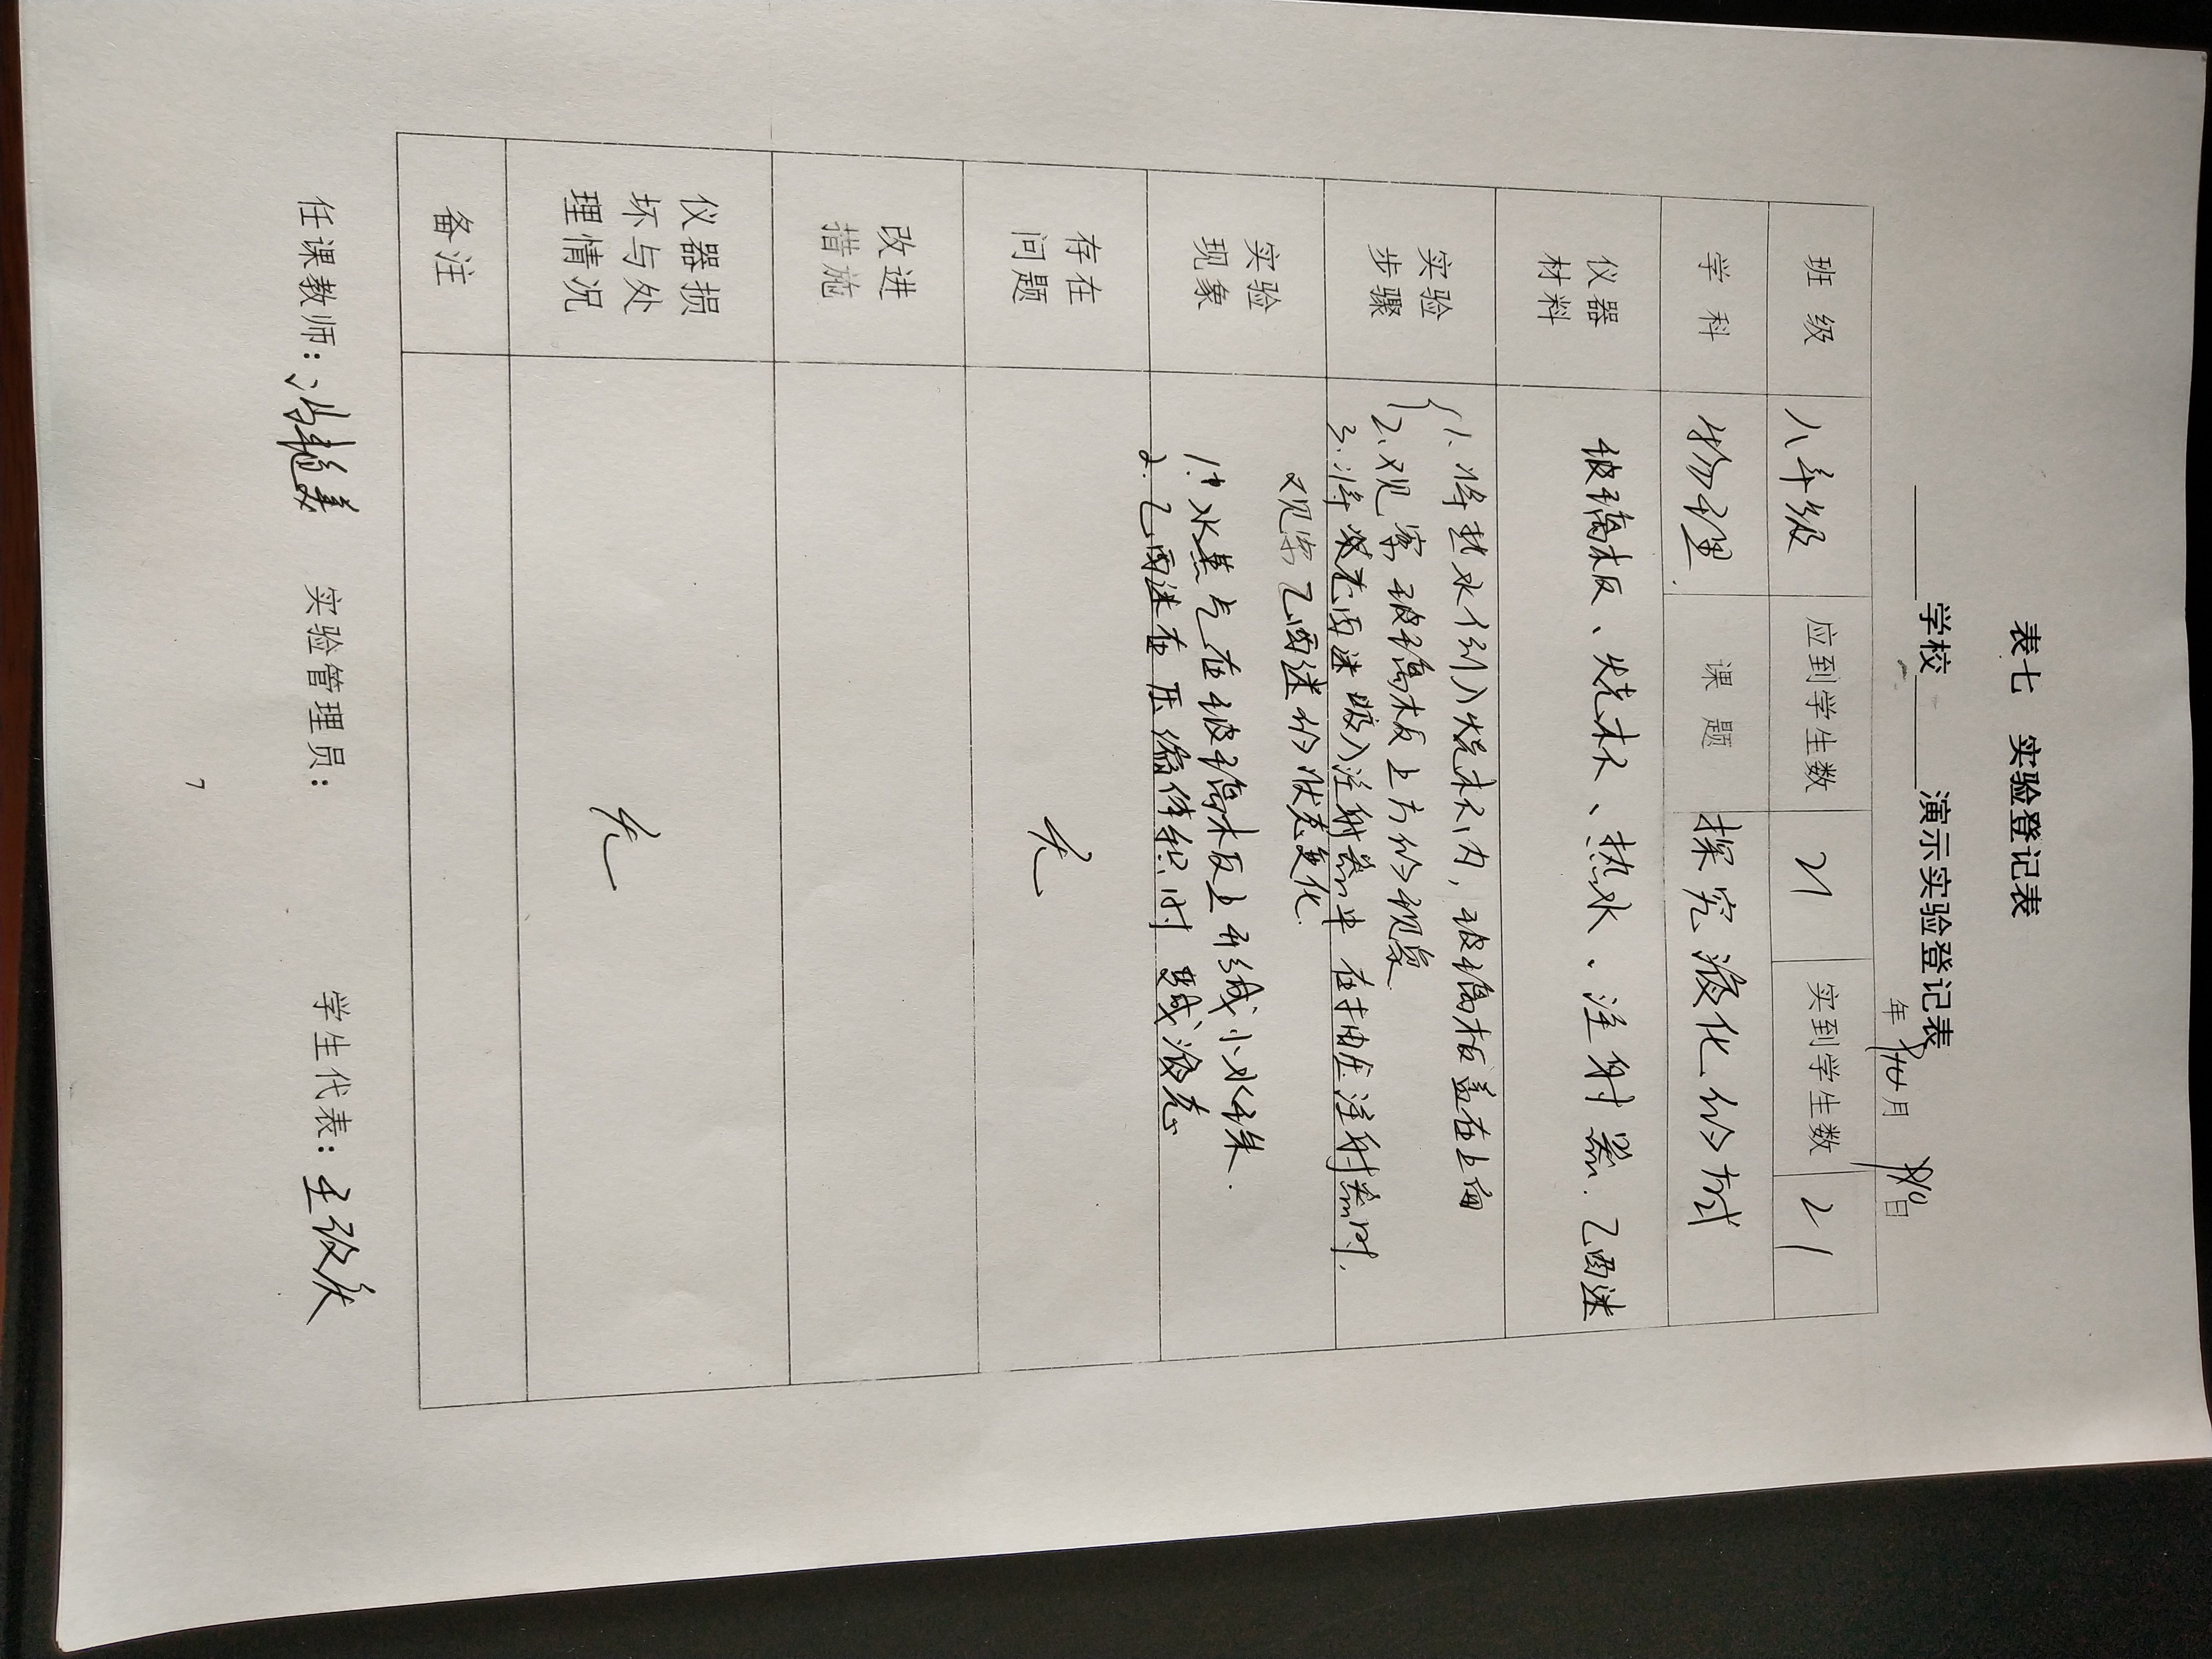 表七 实验登记表
学校 演示实验登记表
年 月 日
班 级 八年级 应到学生数 21 实到学生数 21
学 科 物理 课 题 探究液化的方式
仪器材料 玻璃板、烧杯、热水、注射器.乙醚
实验步骤
1、将热水倒入烧杯内,玻璃板盖在上面
2、观察玻璃板上方的现象
3、将 吸入注射器中 在抽压注射器时,
观察乙醚的状态变化.
实验现象
1.水蒸气在玻璃板上形成小水珠.
2.乙醚在压缩体积时 变成液态
存在问题 无
改进措施
仪器损坏与处理情况 无
备注
任课教师: 实验管理员: 学生代表:
7